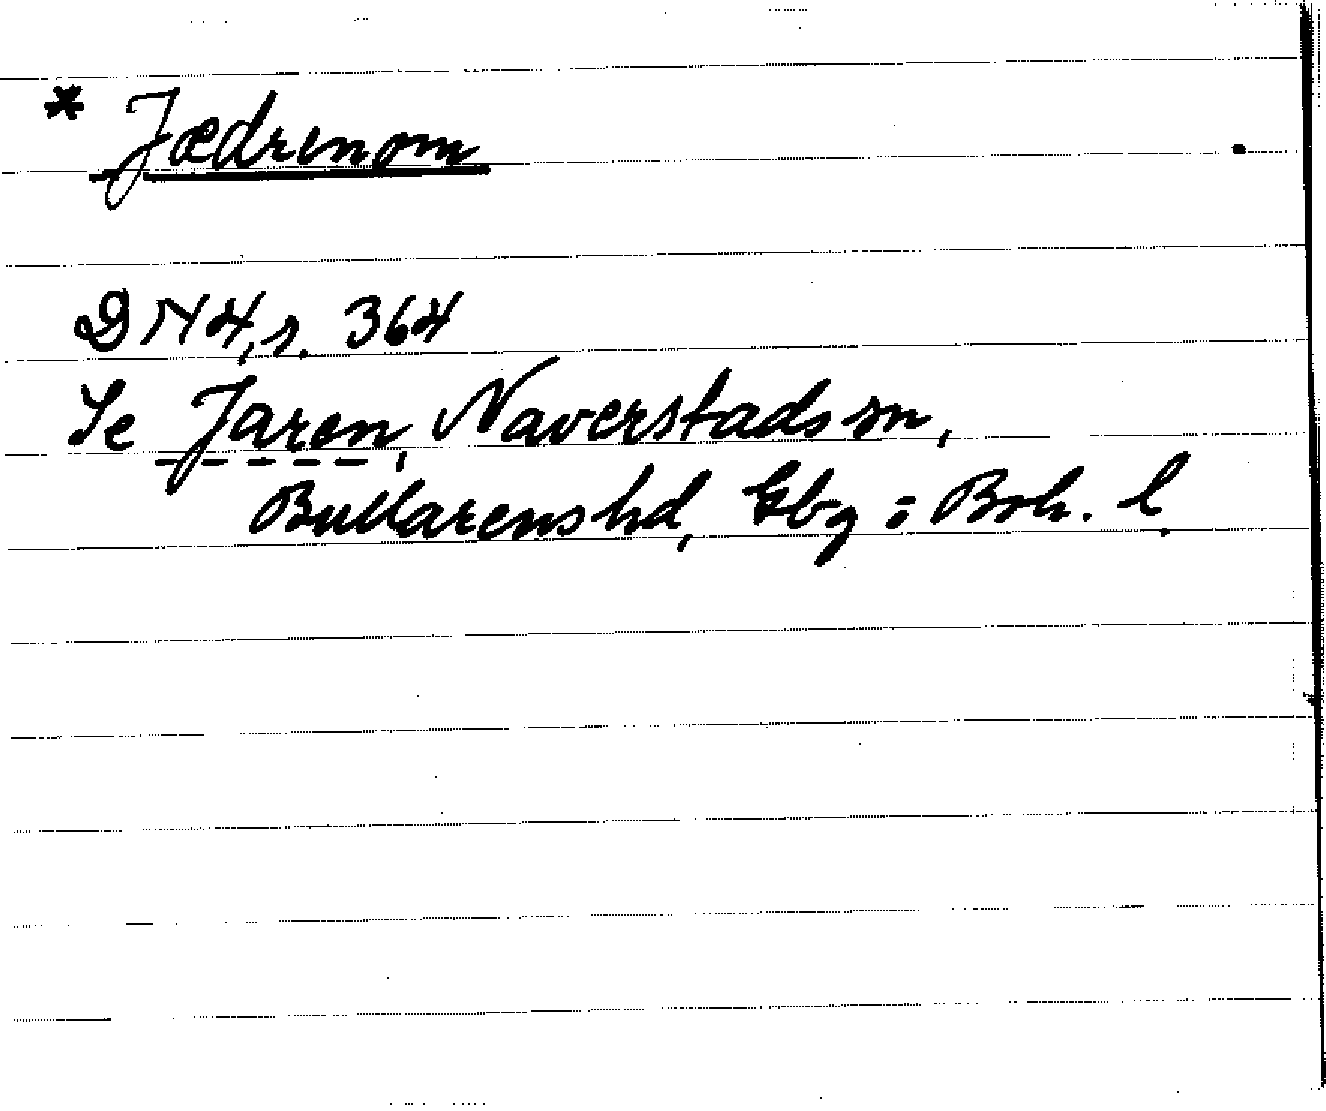 * Jædrenom
DN 4, s. 364
Se Jaren, Naverstads sn,
Bullarens hd, Gbg o Boh. l.